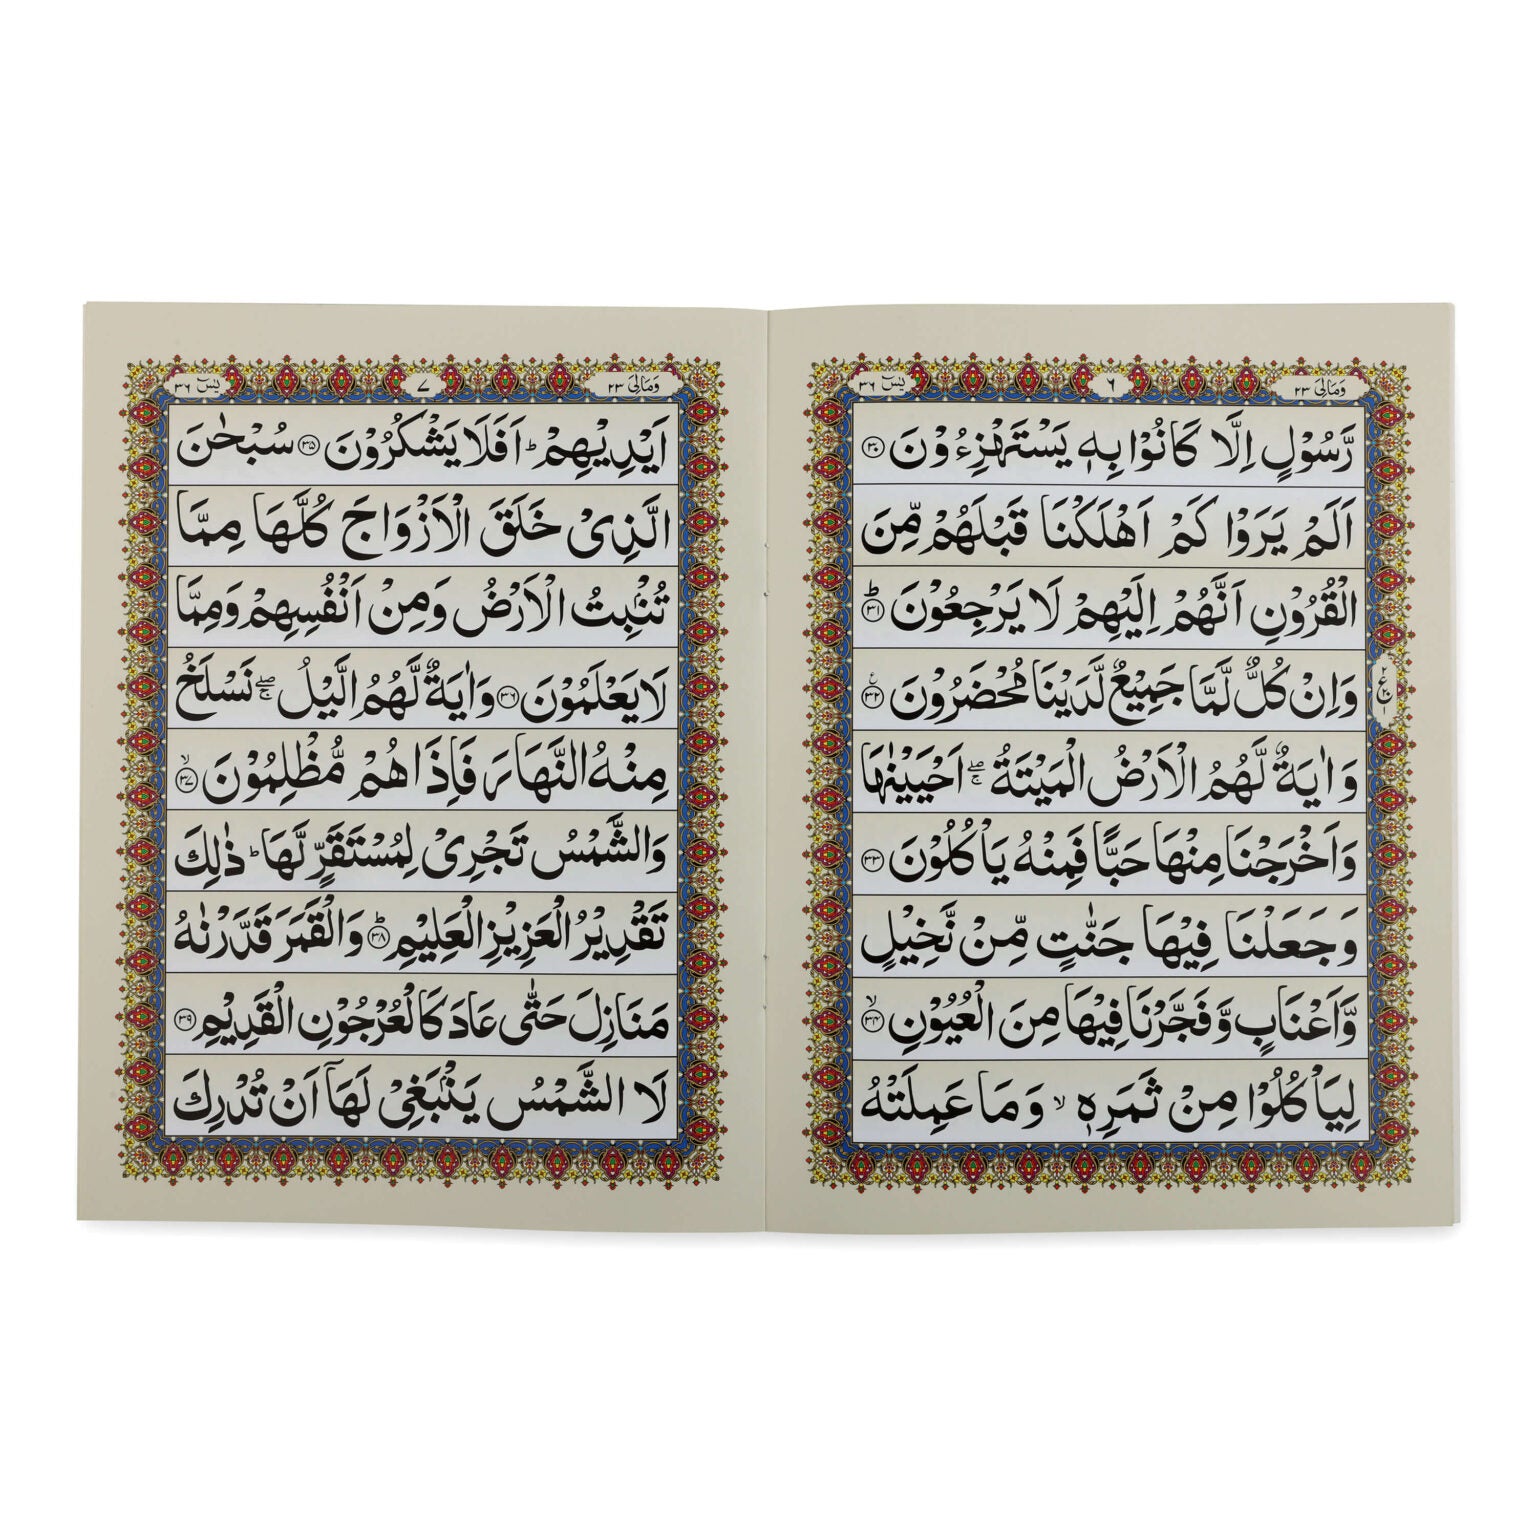 وَمَالِیَ ٢٣
٦
يٰسٓ ٣٦
رَّسُوْلٍ اِلَّا كَانُوْا بِهٖ يَسْتَهْزِءُوْنَ ﴿٣٠﴾
اَلَمْ يَرَوْا كَمْ اَهْلَكْنَا قَبْلَهُمْ مِّنَ
الْقُرُوْنِ اَنَّهُمْ اِلَيْهِمْ لَا يَرْجِعُوْنَ ﴿٣١﴾ ؕ
وَاِنْ كُلٌّ لَّمَّا جَمِيْعٌ لَّدَيْنَا مُحْضَرُوْنَ ﴿٣٢﴾ ع
٢
ع
٢٠
١
وَاٰيَةٌ لَّهُمُ الْاَرْضُ الْمَيْتَةُ ۖۚ اَحْيَيْنٰهَا
وَاَخْرَجْنَا مِنْهَا حَبًّا فَمِنْهُ يَاْكُلُوْنَ ﴿٣٣﴾
وَجَعَلْنَا فِيْهَا جَنّٰتٍ مِّنْ نَّخِيْلٍ
وَّاَعْنَابٍ وَّفَجَّرْنَا فِيْهَا مِنَ الْعُيُوْنِ ﴿٣٤﴾ ۙ
لِيَاْكُلُوْا مِنْ ثَمَرِهٖ ۙ وَمَا عَمِلَتْهُ
وَمَالِیَ ٢٣
٧
يٰسٓ ٣٦
اَيْدِيْهِمْ ؕ اَفَلَا يَشْكُرُوْنَ ﴿٣٥﴾ سُبْحٰنَ
الَّذِىْ خَلَقَ الْاَزْوَاجَ كُلَّهَا مِمَّا
تُنْۢبِتُ الْاَرْضُ وَمِنْ اَنْفُسِهِمْ وَمِمَّا
لَا يَعْلَمُوْنَ ﴿٣٦﴾ وَاٰيَةٌ لَّهُمُ الَّيْلُ ۖۚ نَسْلَخُ
مِنْهُ النَّهَارَ فَاِذَا هُمْ مُّظْلِمُوْنَ ﴿٣٧﴾ ۙ
وَالشَّمْسُ تَجْرِىْ لِمُسْتَقَرٍّ لَّهَا ؕ ذٰلِكَ
تَقْدِيْرُ الْعَزِيْزِ الْعَلِيْمِ ﴿٣٨﴾ ؕ وَالْقَمَرَ قَدَّرْنٰهُ
مَنَازِلَ حَتّٰى عَادَ كَالْعُرْجُوْنِ الْقَدِيْمِ ﴿٣٩﴾
لَا الشَّمْسُ يَنْۢبَغِىْ لَهَاۤ اَنْ تُدْرِكَ